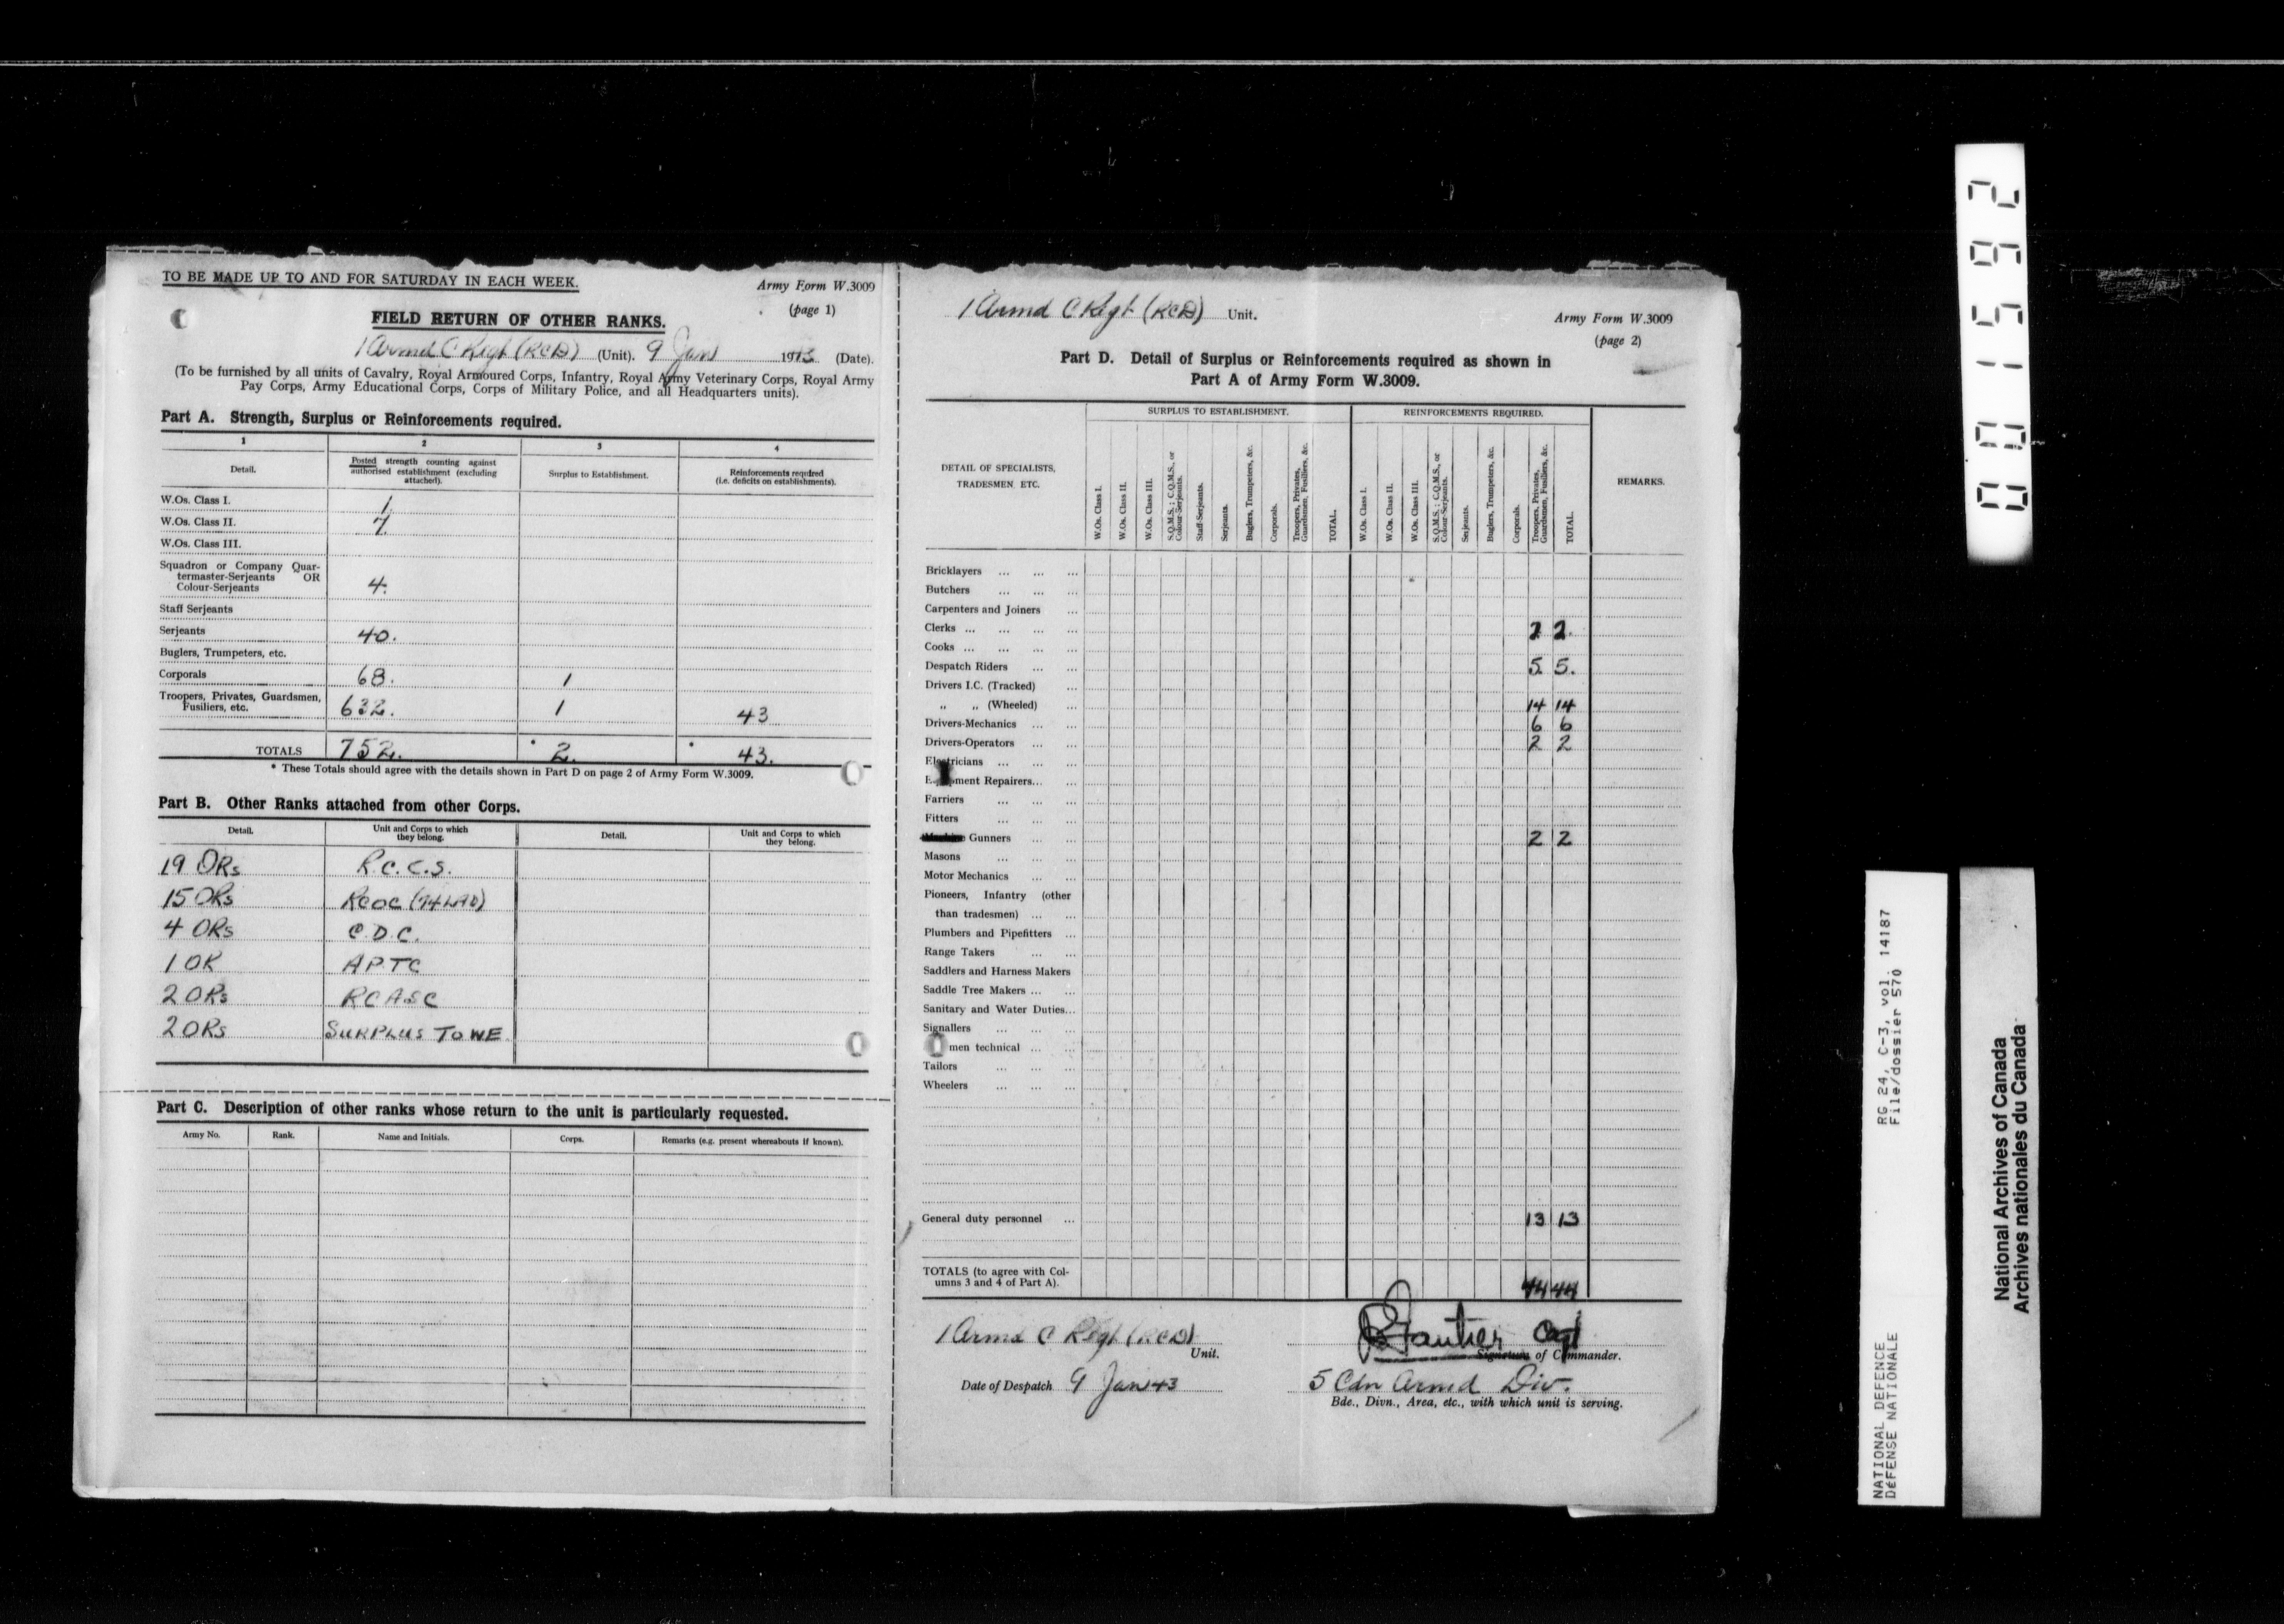 TO BE MADE UP TO AND FOR SATURDAY IN EACH WEEK.
Army Form W.3009
(page 1)
FIELD RETURN OF OTHER RANKS.
1 Armd C Regt (RCD) (Unit). 9 Jan 1943 (Date).
(To be furnished by all units of Cavalry, Royal Armoured Corps, Infantry, Royal Army Veterinary Corps, Royal Army
Pay Corps, Army Educational Corps, Corps of Military Police, and all Headquarters units).
Part A. Strength, Surplus or Reinforcements required.
1 2 3 4
Detail. Posted strength counting against authorised establishment (excluding attached). Surplus to Establishment. Reinforcements required (i.e. deficits on establishments).
W.Os. Class I. 1
W.Os. Class II. 7
W.Os. Class III.
Squadron or Company Quar-
termaster-Serjeants OR
Colour-Serjeants 4.
Staff Serjeants
Serjeants 40.
Buglers, Trumpeters, etc.
Corporals 68. 1
Troopers, Privates, Guardsmen,
Fusiliers, etc. 632. 1 43
TOTALS 752. * 2. * 43.
* These Totals should agree with the details shown in Part D on page 2 of Army Form W.3009.
Part B. Other Ranks attached from other Corps.
Detail. Unit and Corps to which they belong. Detail. Unit and Corps to which they belong.
19 ORs R.C.C.S.
15 ORs RCOC (74 LAD)
4 ORs C.D.C.
1 OR APTC
2 ORs RCASC
2 ORs SURPLUS TO WE
Part C. Description of other ranks whose return to the unit is particularly requested.
Army No. Rank. Name and Initials. Corps. Remarks (e.g. present whereabouts if known).
1 Armd C Regt (RCD) Unit.
Army Form W.3009
(page 2)
Part D. Detail of Surplus or Reinforcements required as shown in
Part A of Army Form W.3009.
SURPLUS TO ESTABLISHMENT. REINFORCEMENTS REQUIRED.
DETAIL OF SPECIALISTS,
TRADESMEN, ETC.
W.Os. Class I.
W.Os. Class II.
W.Os. Class III.
S.Q.M.S.; C.Q.M.S., or Colour-Serjeants.
Staff-Serjeants.
Serjeants.
Buglers, Trumpeters, &c.
Corporals.
Troopers, Privates, Guardsmen, Fusiliers, &c.
TOTAL.
W.Os. Class I.
W.Os. Class II.
W.Os. Class III.
S.Q.M.S.; C.Q.M.S., or Colour-Serjeants.
Serjeants.
Buglers, Trumpeters, &c.
Corporals.
Troopers, Privates, Guardsmen, Fusiliers, &c.
TOTAL.
REMARKS.
Bricklayers ... ... ...
Butchers ... ... ...
Carpenters and Joiners ...
Clerks ... ... ... ... 2 2.
Cooks ... ... ... ...
Despatch Riders ... ... 5 5.
Drivers I.C. (Tracked) ...
" " (Wheeled) ... 14 14
Drivers-Mechanics ... ... 6 6
Drivers-Operators ... ... 2 2
Electricians ... ... ...
ment Repairers... ...
Farriers ... ... ...
Fitters ... ... ...
Gunners ... ... 2 2
Masons ... ... ...
Motor Mechanics ... ...
Pioneers, Infantry (other
than tradesmen) ... ...
Plumbers and Pipefitters ...
Range Takers ... ...
Saddlers and Harness Makers
Saddle Tree Makers ... ...
Sanitary and Water Duties...
Signallers ... ... ...
men technical ... ...
Tailors ... ... ...
Wheelers ... ... ...
General duty personnel ... 13 13
TOTALS (to agree with Col-
umns 3 and 4 of Part A). 44 44
1 Armd C Regt (RCD)
Unit.
Capt
Signature of Commander.
Date of Despatch 9 Jan 43
5 Cdn Armd Div.
Bde., Divn., Area, etc., with which unit is serving.
0001592
RG 24, C-3, vol. 14187
File/dossier 570
NATIONAL DEFENCE
DÉFENSE NATIONALE
National Archives of Canada
Archives nationales du Canada